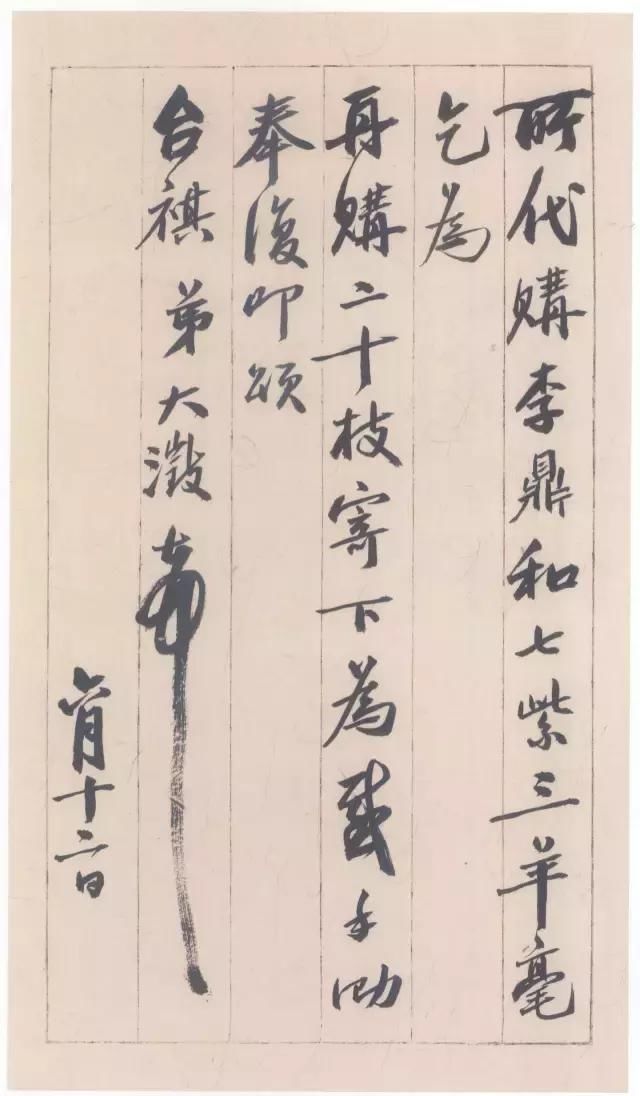 所代購李鼎和七紫三羊毫
乞為
再購二十枝寄下為感手泐
奉復叩頌
台祺 弟大澂
六月十二日